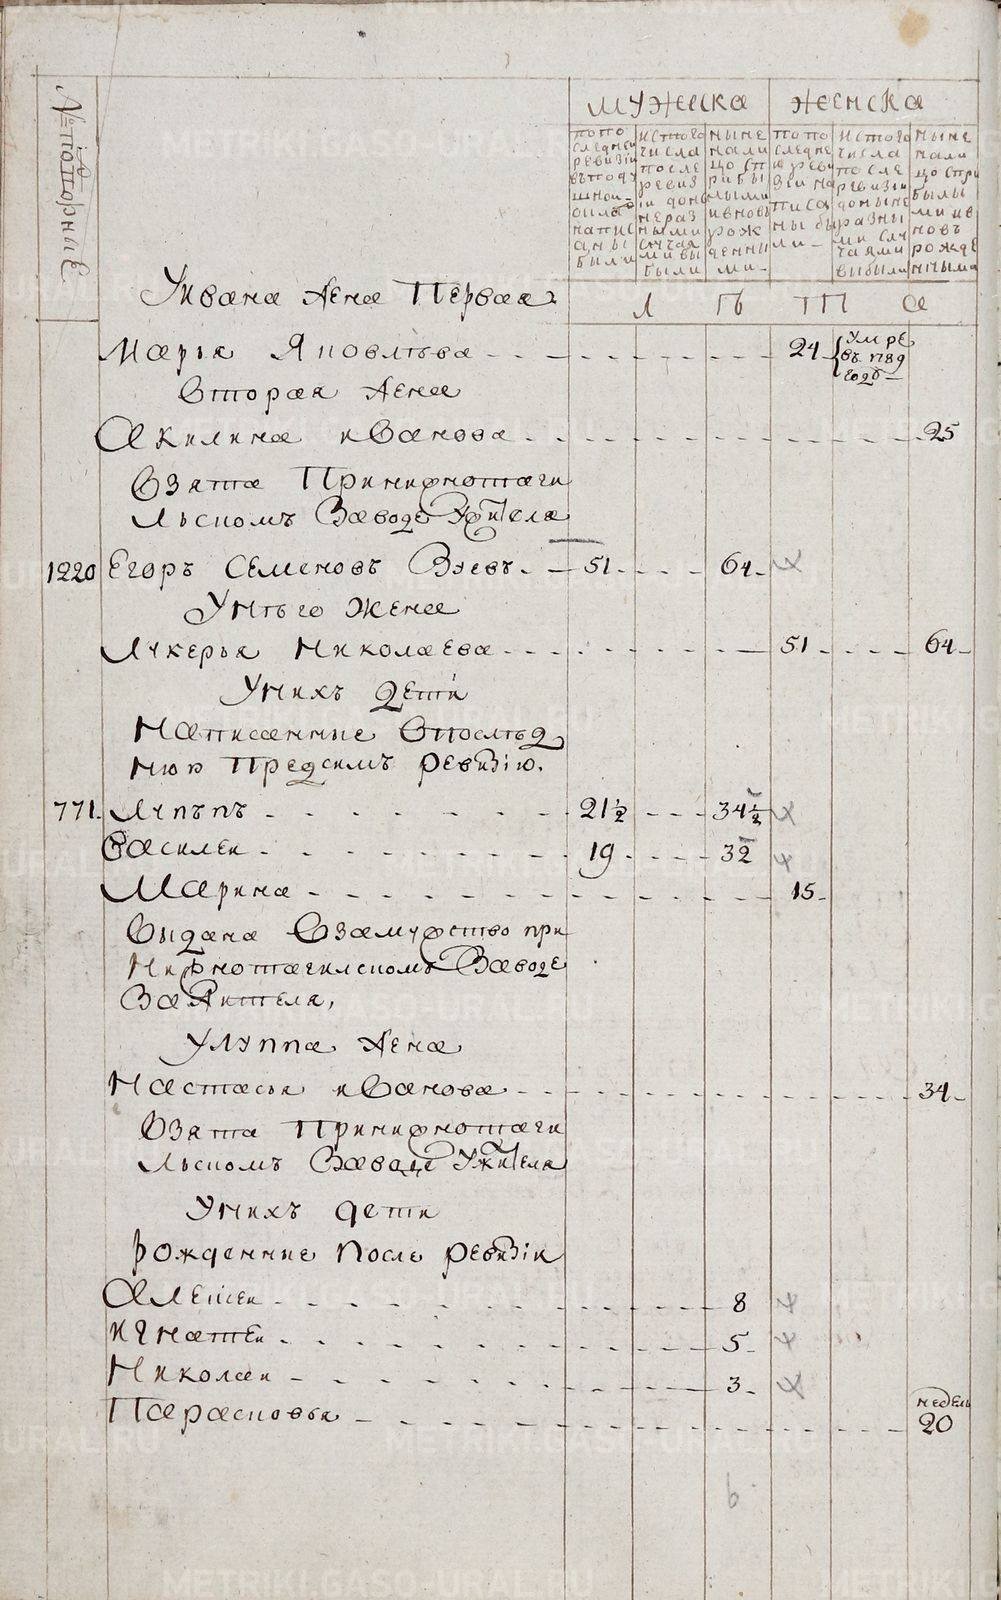 № повторные
мужеска женска
попо следней ревизiи въподу шной окладъ написаны были
истого числа после ревизiи доныне разными случаями выбыли
ныне налицо сприбылыми ивновь рожденными
попоследней ревизеи написаны были
истого числа после ревизiи доныне разными случаями выбыли
ныне налицо сприбылыми ивновь рожденными
Уивана жена Первая
Л Ѣ Т А
Марья Яковлѣва 24 умре въ 1789 годѣ
Вторая жена
Акилина иванова 25
Взята Принижнотаги
льскомъ Заводе Ужителя
1220 Егоръ Семеновъ Зуевъ 51 64
Унѣго жена
Лукерья Николаева 51 64
Унихъ дети
Написанные Впослѣд
нюю Предсимъ ревизiю.
771. Лупъпъ 21½ 34½
Василеи 19 32
Марина 15
Выдана Взамужство при
Нижнотагилскомъ Заводе
За жителя,
Улуппа жена
Настасья иванова 34
Взята Принижнотаги
льскомъ Заводе Ужителя
Унихъ дети
рожденные После ревизiи
Алексеи 8
игнатеи 5
Николаи 3
недель
Парасковья 20
6
METRIKI.GASO-URAL.RU